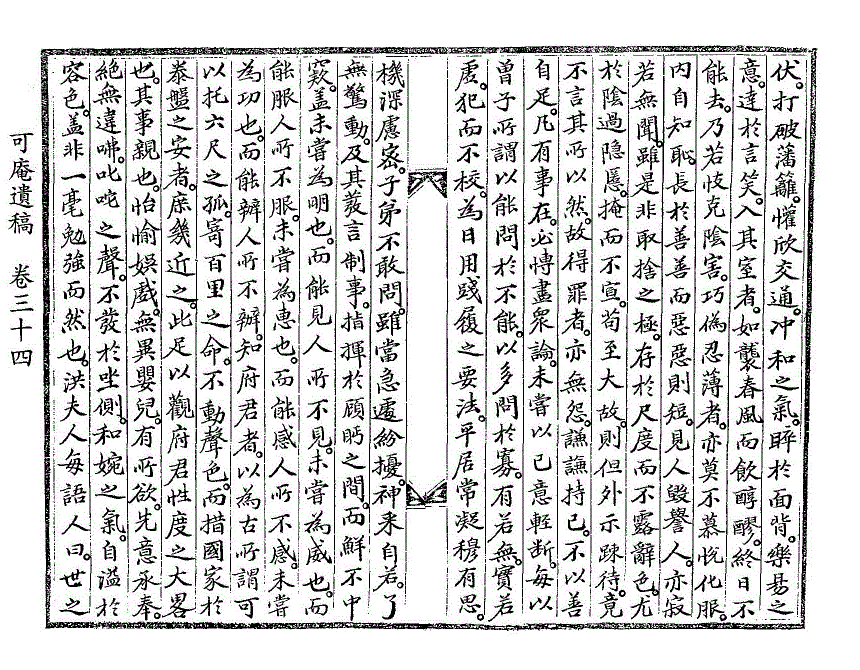 伏。打破藩籬。懽欣交通。冲和之氣。睟於面背。樂易之
意。達於言笑。入其室者。如襲春風而飮醇醪。終日不
能去。乃若忮克陰害。巧僞忍薄者。亦莫不慕悅化服。
內自知恥。長於善善而惡惡則短。見人毁譽人。亦寂
若無聞。雖是非取捨之極。存於尺度而不露辭色。尤
於陰過隱慝。掩而不宣。苟至大故。則但外示踈待。竟
不言其所以然。故得罪者。亦無怨。謙謙持己。不以善
自足。凡有事在。必博盡衆論。未嘗以己意輕斷。每以
曾子所謂以能問於不能。以多問於寡。有若無。實若
虛。犯而不校。爲日用踐履之要法。平居常凝穆有思。
機深慮密。子弟不敢問。雖當急遽紛擾。神采自若。了
無驚動。及其發言制事。指揮於顧眄之間。而鮮不中
窾。盖未嘗爲明也。而能見人所不見。未嘗爲威也。而
能服人所不服。未嘗爲惠也。而能感人所不感。未嘗
爲功也。而能辦人所不辦。知府君者。以爲古所謂可
以托六尺之孤。寄百里之命。不動聲色。而措國家於
泰盤之安者。庶幾近之。此足以觀府君性度之大畧
也。其事親也。怡愉娛戱。無異嬰兒。有所欲。先意承奉。
絶無違咈。叱咤之聲。不發於坐側。和婉之氣。自溢於
容色。盖非一毫勉強而然也。洪夫人每語人曰。世之
可庵遺稿 卷三十四